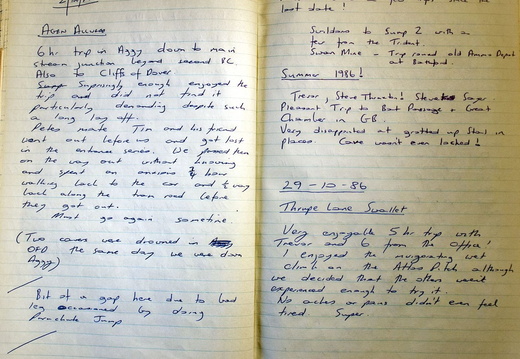 Agen Allwedd
6 hr trip in Aggy down to main
stream junction beyond second BC.
Also to Cliffs of Dover.
Surprisingly enough enjoyed the
trip and did not find it
particularly demanding despite such
a long lay off.
Petes mate Tim and his friend
went out before us and got lost
in the entrance series. We passed them
on the way out without knowing
and spent an anxious ¾ hour
walking back to the car and ½ way
back along the tram road before
they got out.
Must go again sometime.
(Two cavers were drowned in
OFD the same day we were down
Aggy)
Bit of a gap here due to bad
leg occasioned by doing
Parachute Jump
last date!
Swildons to Sump 2 with a
few from the Trident.
Swan Mine - Trip round old Ammo Depot
at Bathford.
Summer 1986!
Trevor, Steve
Pleasant Trip to Bat Passage + Great
Chamber in GB.
Very disappointed at grotted up Stal in
places. Cave wasn't even locked!
29-10-86
Thrupe Lane Swallet
Very enjoyable 5 hr trip with
Trevor and 6 from the office!
I enjoyed the invigorating wet
climb on the Atlas Pitch although
we decided that the others weren't
experienced enough to try it.
No aches or pains didn't even feel
tired. Super.